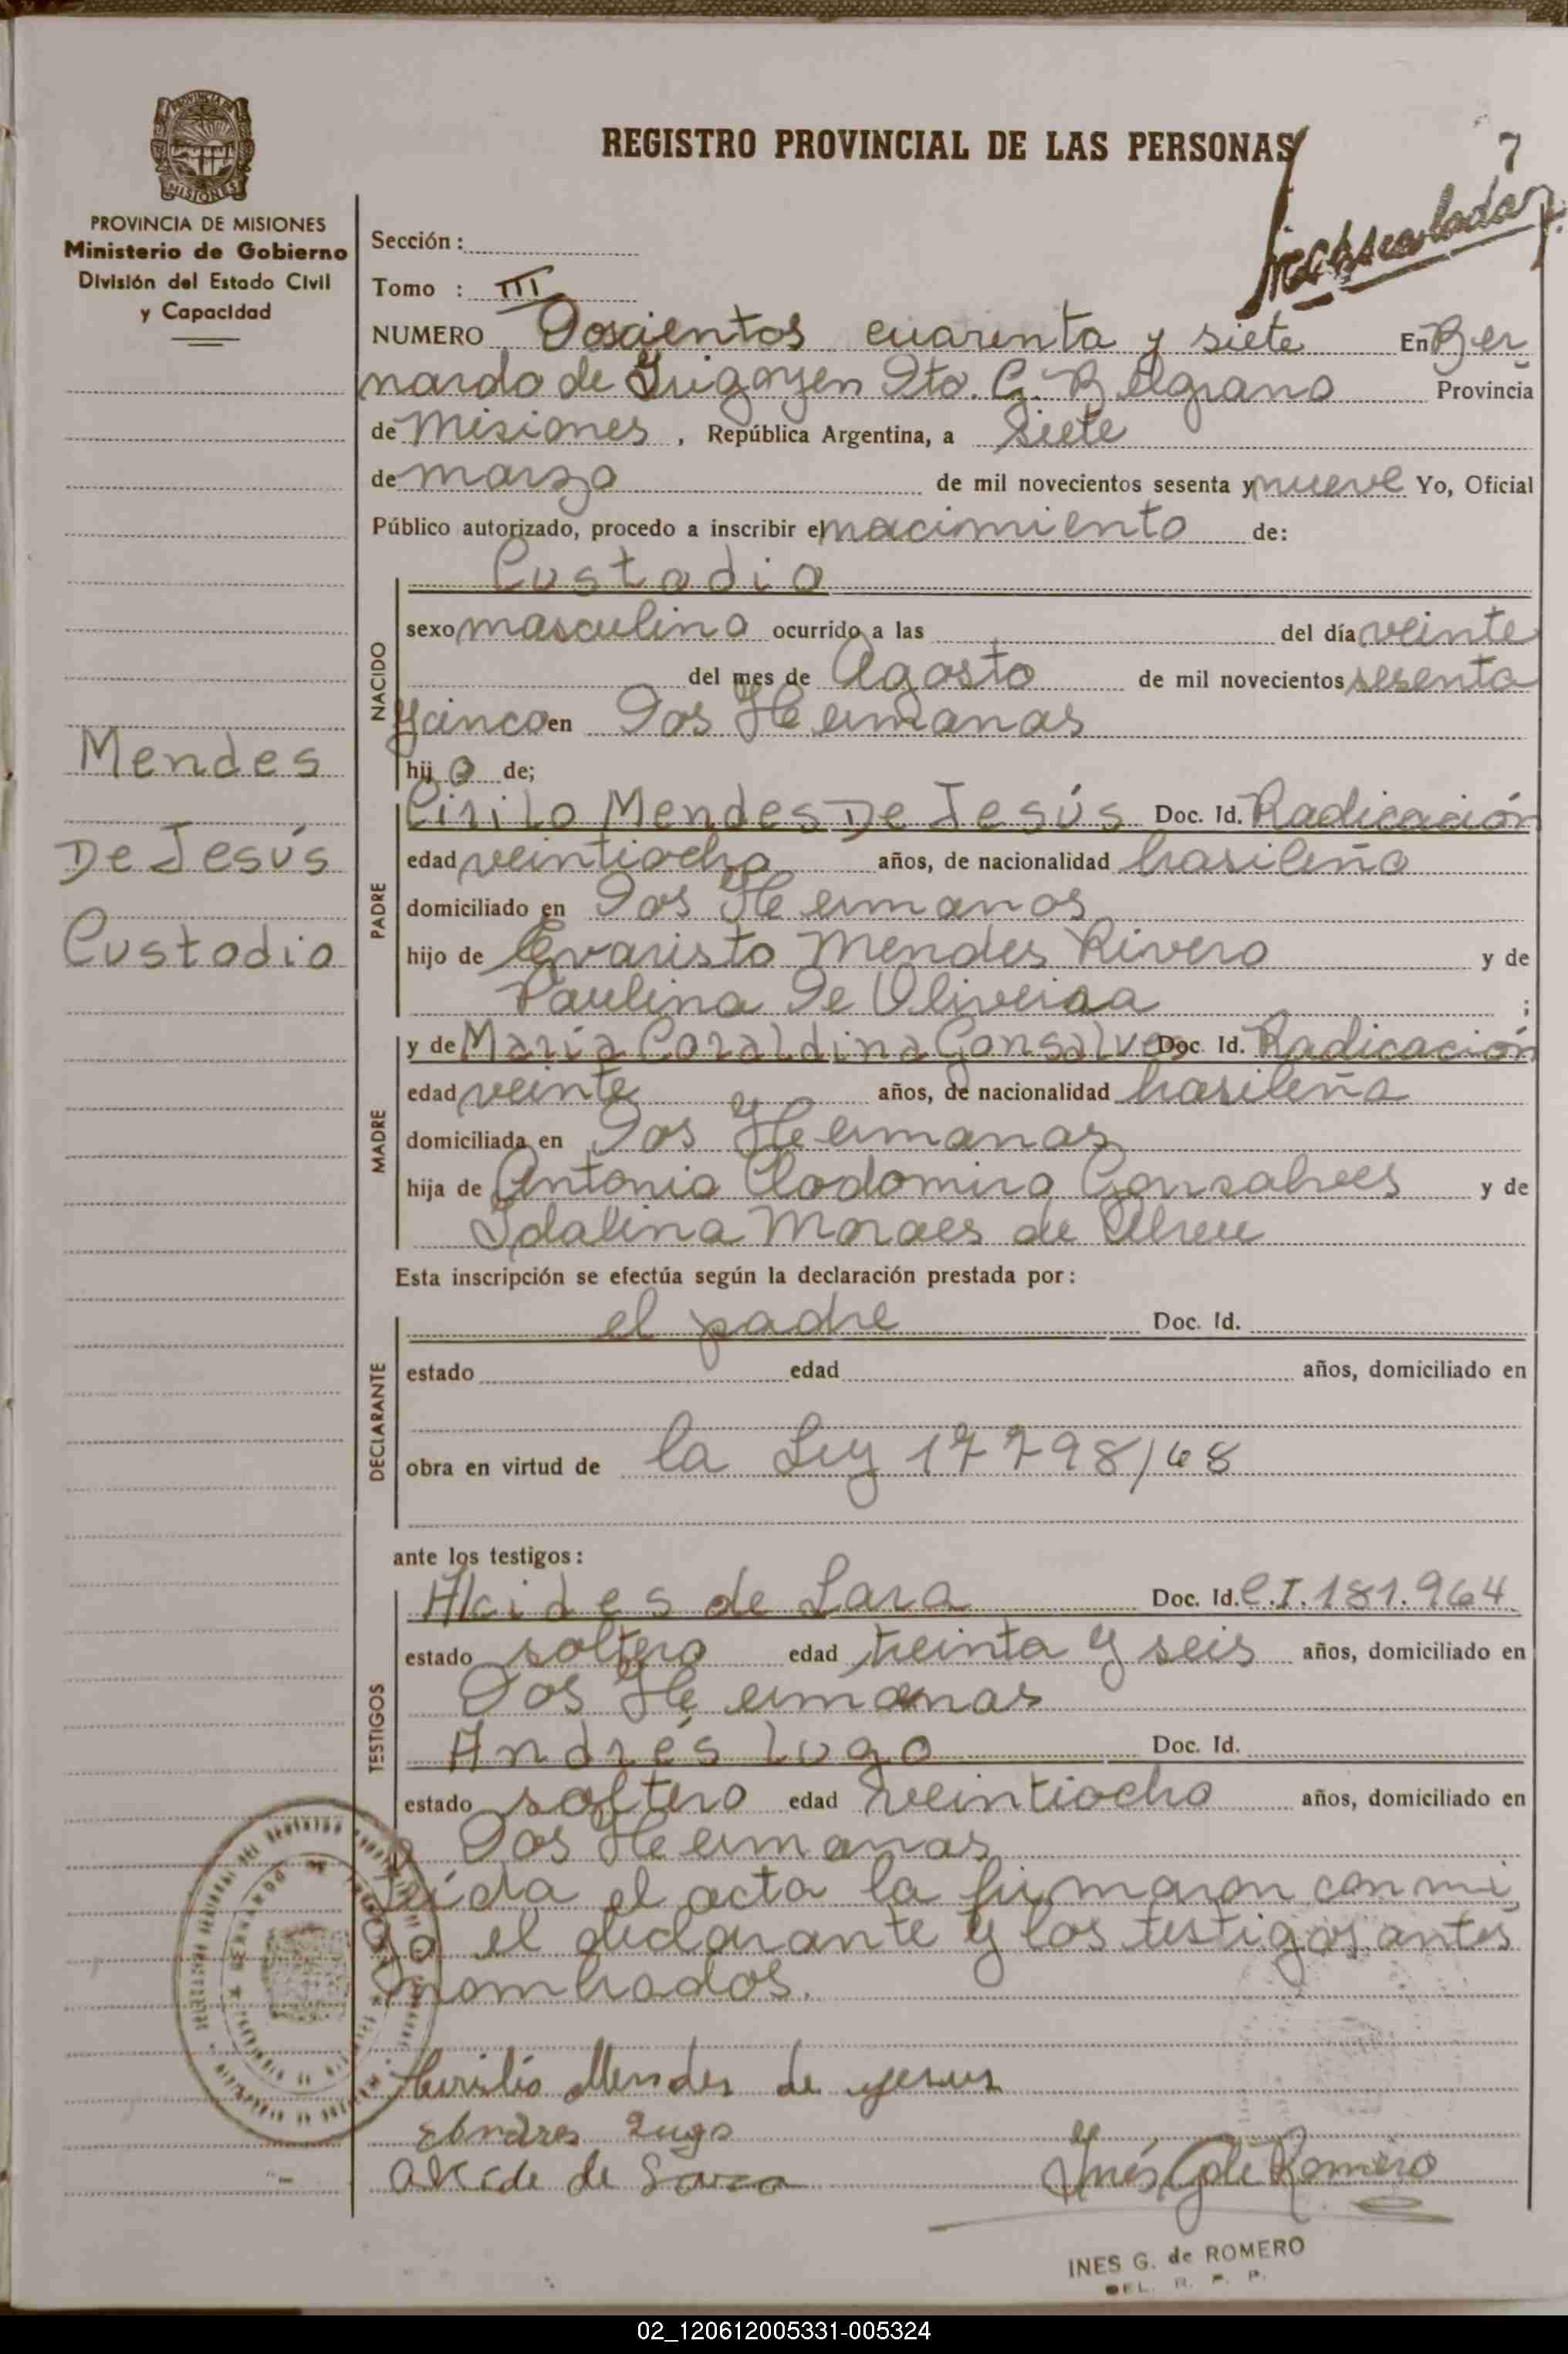 REGISTRO PROVINCIAL DE LAS PERSONAS
7
PROVINCIA DE
MISIONES
PROVINCIA DE MISIONES
Ministerio de Gobierno
División del Estado Civil
y Capacidad
Mendes
De Jesús
Custodio
Sección:
Tomo : III
NUMERO Doscientos cuarenta y siete En Ber
nardo de Irigoyen Dto. G. Belgrano Provincia
de Misiones, República Argentina, a siete
de marzo de mil novecientos sesenta y nueve Yo, Oficial
Público autorizado, procedo a inscribir el nacimiento de:
NACIDO
Custodio
sexo masculino ocurrido a las del día veinte
del mes de Agosto de mil novecientos sesenta
y cinco en Dos Hermanas
hij o de;
PADRE
Cirilo Mendes De Jesús Doc. Id. Radicación
edad veintiocho años, de nacionalidad brasileña
domiciliado en Dos Hermanas
hijo de Evaristo Mendes Rivero y de
Paulina De Oliveira ;
MADRE
y de María Coraldina Gonsalves Doc. Id. Radicación
edad veinte años, de nacionalidad brasileña
domiciliada en Dos Hermanas
hija de Antonio Clodomiro Gonsalves y de
Idalina Moraes de Abreu
Esta inscripción se efectúa según la declaración prestada por:
DECLARANTE
el padre Doc. Id.
estado edad años, domiciliado en
obra en virtud de la Ley 17798/68
ante los testigos:
TESTIGOS
Alcides de Lara Doc. Id. C.I. 181.964
estado soltero edad treinta y seis años, domiciliado en
Dos Hermanas
Andrés Lugo Doc. Id.
estado soltero edad veintiocho años, domiciliado en
Dos Hermanas
Leída el acta la firmaron conmi
go el declarante y los testigos antes
nombrados.
Mendes de yesus
Lugo
de
Inés G de Romero
INES G. de ROMERO
DEL. R. P. P.
02_120612005331-005324